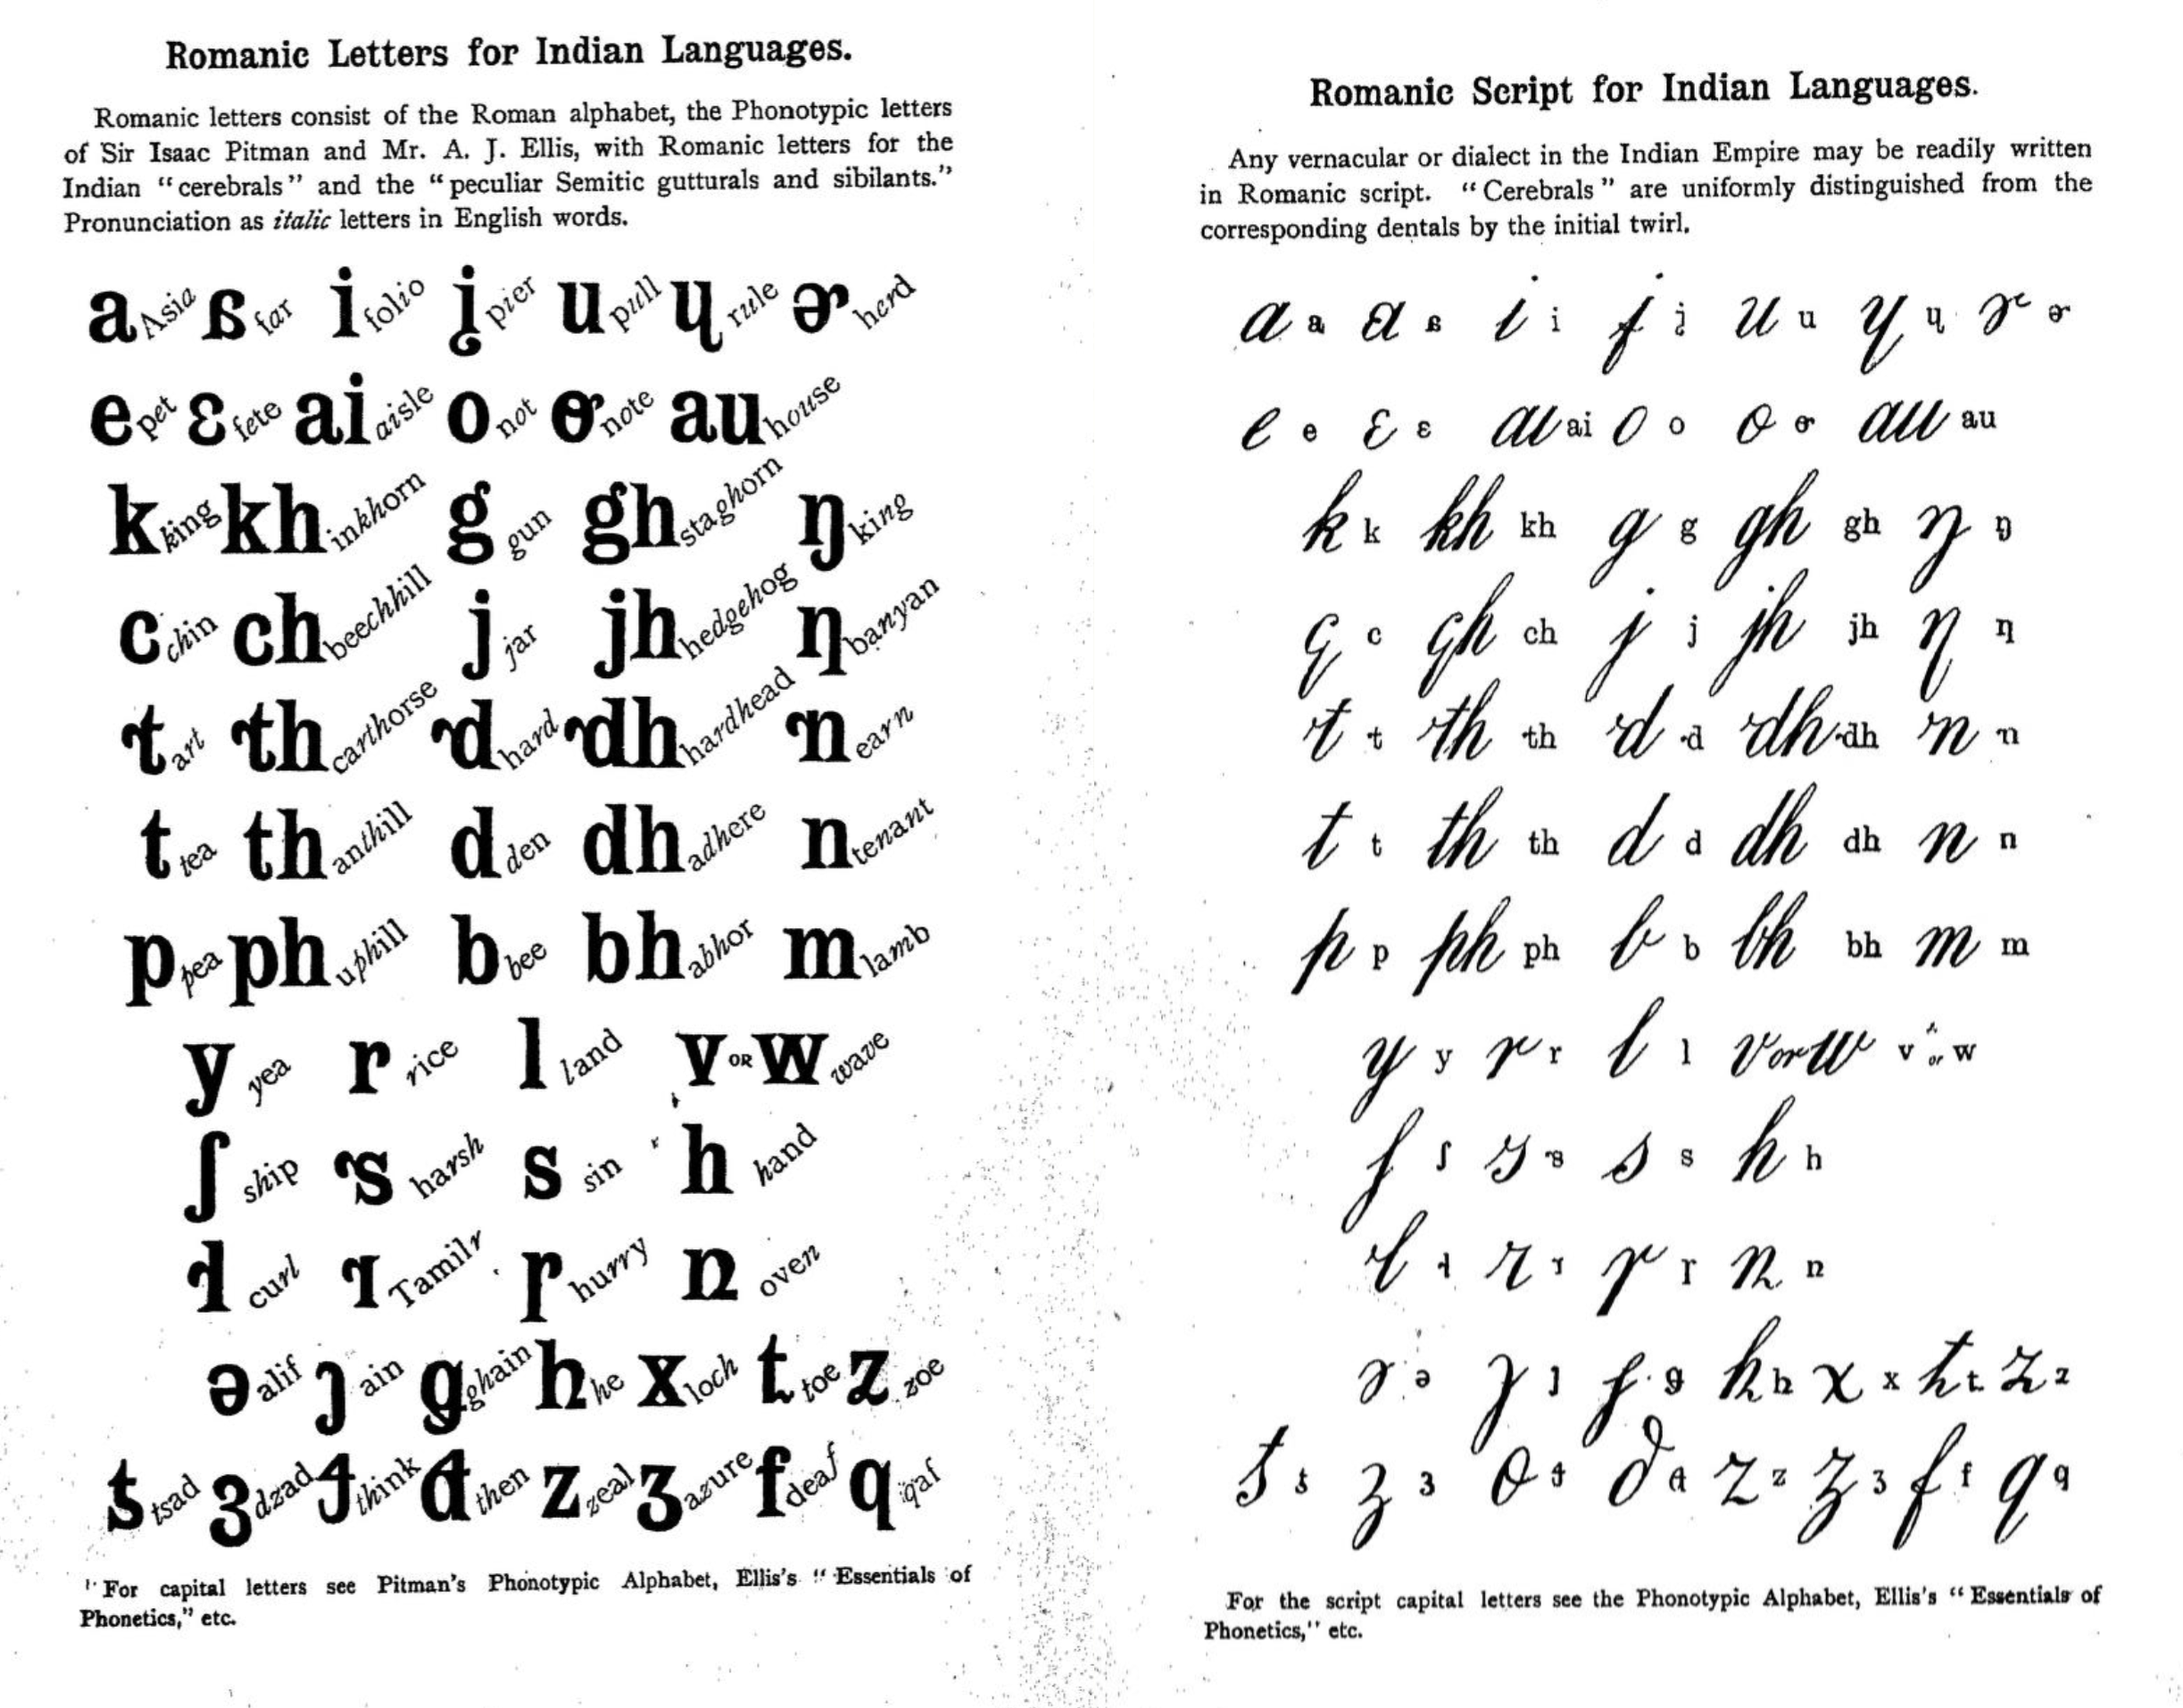 Romanic Letters for Indian Languages.
Romanic letters consist of the Roman alphabet, the Phonotypic letters
of Sir Isaac Pitman and Mr. A. J. Ellis, with Romanic letters for the
Indian “cerebrals” and the “peculiar Semitic gutturals and sibilants.”
Pronunciation as italic letters in English words.
a Asia ɞ far i folio j pier u pull ɥ rule ə herd
e pet ɛ fete ai aisle o not ɵ note au house
k king kh inkhorn g gun gh staghorn ŋ king
c chin ch beechhill j jar jh hedgehog η banyan
t art th carthorse d hard dh hardhead n earn
t tea th anthill d den dh adhere n tenant
p pea ph uphill b bee bh abhor m lamb
y yea r rice l land v OR w wave
ʃ ship s harsh s sin h hand
l curl ɿ Tamilr r hurry n oven
ə alif ȷ ain g ghain h he x loch t toe z zoe
s tsad ʒ dzad think d then z zeal ʒ azure f deaf q qaf
For capital letters see Pitman's Phonotypic Alphabet, Ellis's “Essentials of
Phonetics,” etc.
Romanic Script for Indian Languages.
Any vernacular or dialect in the Indian Empire may be readily written
in Romanic script. “Cerebrals” are uniformly distinguished from the
corresponding dentals by the initial twirl.
a a ɞ ɞ i i j j u u ɥ ɥ ə ə
e e ɛ ɛ ai ai o o ɵ ɵ au au
k k kh kh g g gh gh ŋ ŋ
c c ch ch j j jh jh η η
t t th th d d dh dh n n
t t th th d d dh dh n n
p p ph ph b b bh bh m m
y y r r l l v or w v or w
ʃ ʃ s s s s h h
l l ɿ ɿ r r n n
ə ə ȷ ȷ g g h h x x t t z z
s s ʒ ʒ d d z z ʒ ʒ f f q q
For the script capital letters see the Phonotypic Alphabet, Ellis's “Essentials of
Phonetics,” etc.